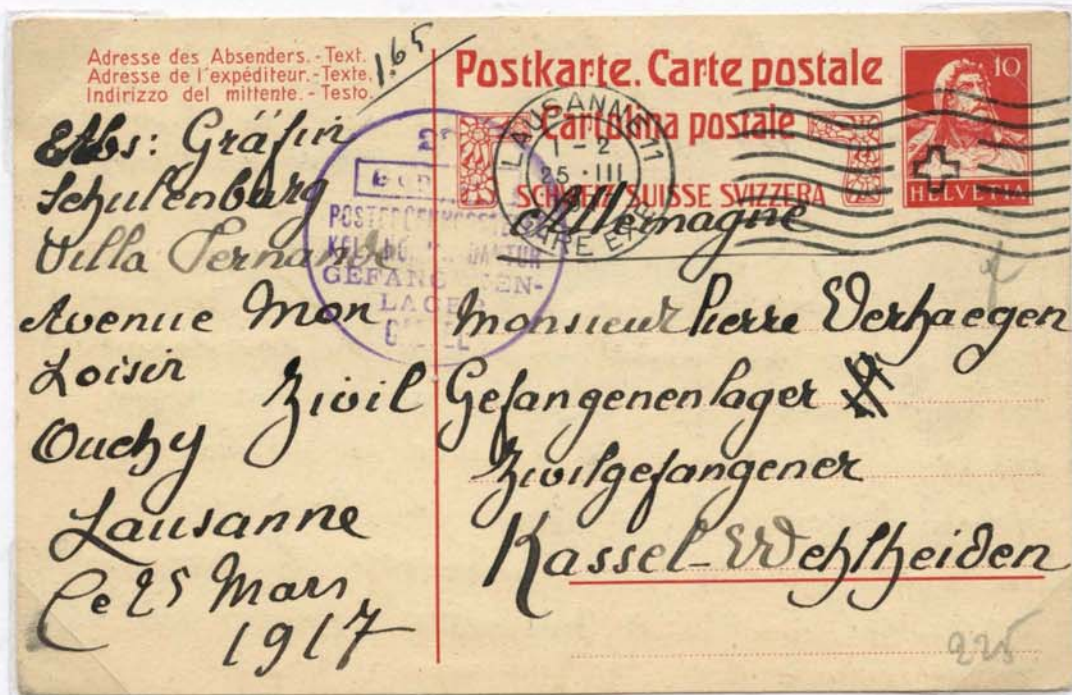 Adresse des Absenders. - Text.
Adresse de l'expéditeur. - Texte.
Indirizzo del mittente. - Testo.
1.65
Postkarte. Carte postale
Cartolina postale
SCHWEIZ SUISSE SVIZZERA
10
HELVETIA
LAUSANNE 11
1 - 2
25 · III
GARE
GEFANGENEN-
LAGER
Abs: Gräfin
Schulenburg
Villa
Avenue Mon
Loisir
Ouchy
Lausanne
Ce 25 Mars
1917
Allemagne
Monsieur Pierre Verhaegen
Zivil Gefangenenlager
Zivilgefangener
Kassel-Wehlheiden
225